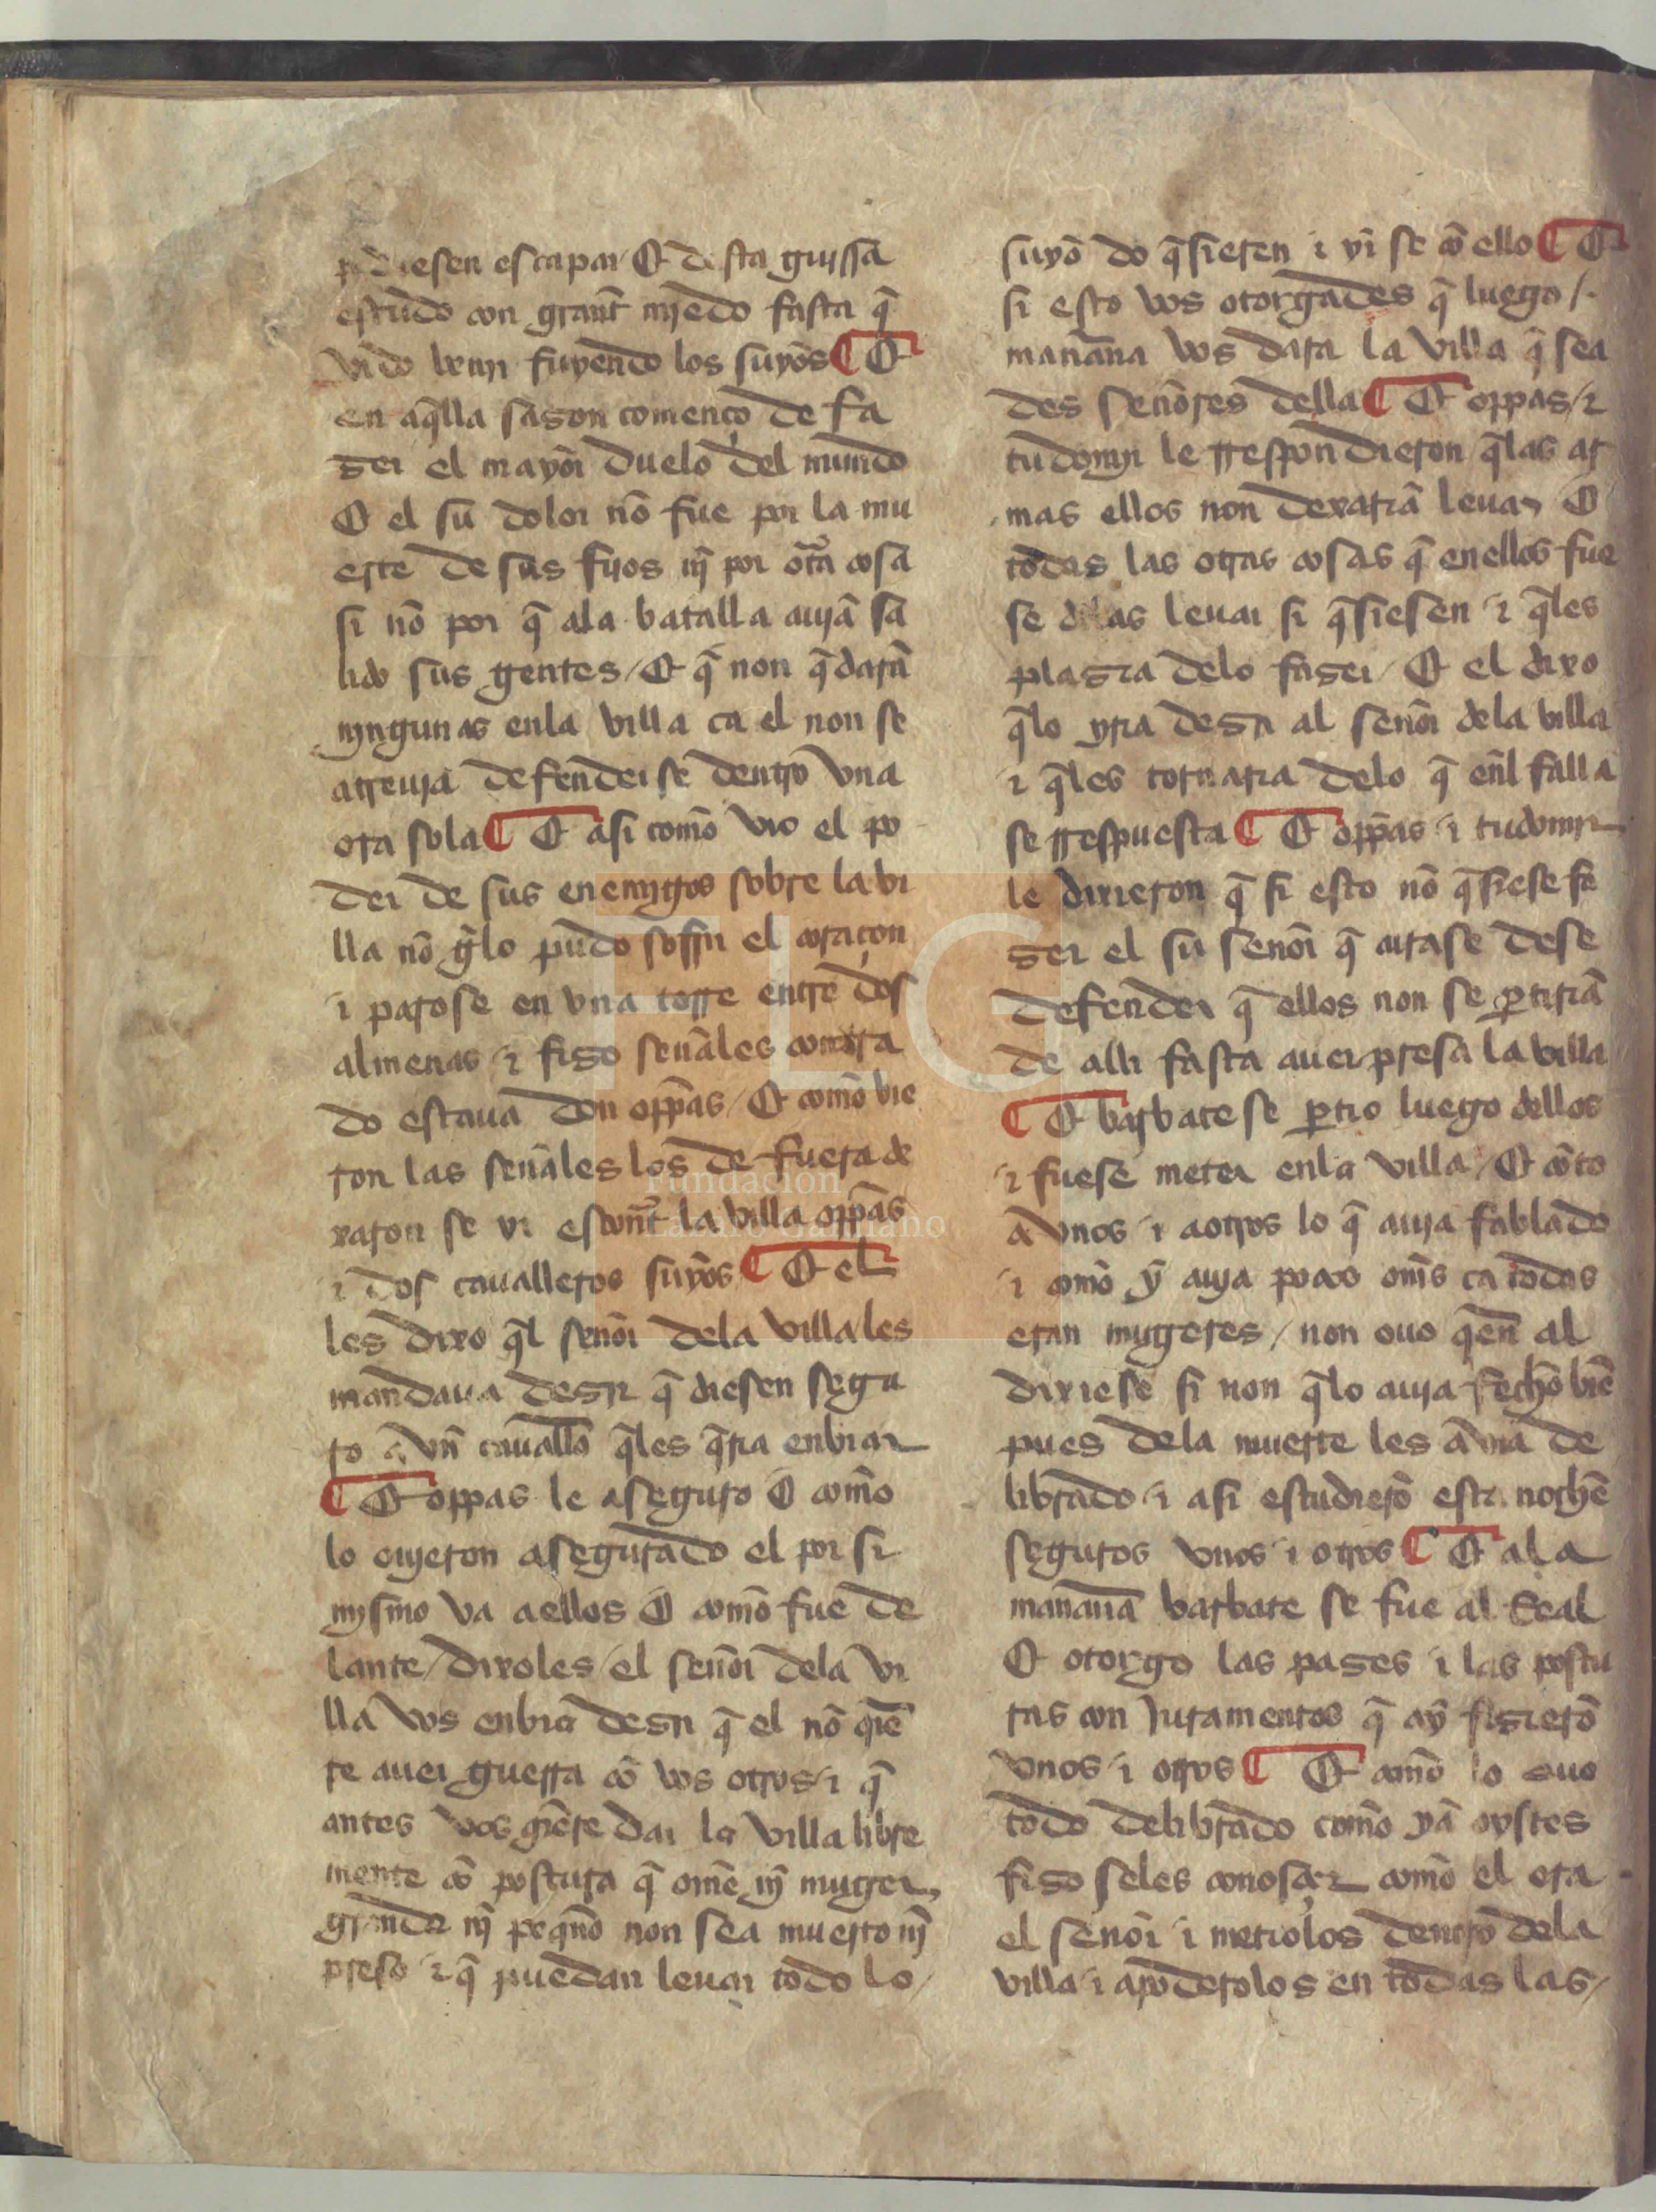 pudiesen escapar / Et desta guissa
estudo con grant mjedo fasta q̃
vido venjr fuyendo los suyos ¶ Et
en aq̃lla sason començo de fa
ser el mayor duelo del mundo
Et el su dolor nõ fue por la mu
erte de sus fijos nj̃ por ot̃a cosa
si nõ por q̃ ala batalla aujã sa
lido sus gentes / Et q̃ non q̃darã
njngunas enla villa ca el non se
atreuja defenderse dentro vna
ora sola ¶ Et asi como vio el po
der de sus enemjgos sobre la vi
lla nõ gelo pudo sofrir el coraçon
i parose en vna torre entre dos
almenas i fiso señales contra
do estaua don oppas / Et como vie
ron las señales los de fuera de
xaron se vr̃ escont̃ la villa oppas
i dos caualleros suyos ¶ Et el
les dixo q̃l señor dela villa les
mandaua desir q̃ diesen segu
ro a vñ cauallõ q̃les q̃ria enbiar
¶ Et oppas le aseguro Et como
lo oujeron asegurado el por si
mjsmo va aellos Et como fue de
lante / dixoles / el señor dela vi
lla vos enbia desir q̃ el nõ quie
re auer guerra cõ vos otros i q̃
antes vos quiere dar la villa libre
mente cõ postura q̃ omẽ nj̃ muger,
grande nj̃ peq̃no non sea muerto nj̃
preso i q̃ puedan leuar todo lo /
suyo do q̃sieren i yr se cõ ello ¶ Et
si esto vos otorgades q̃ luego /
mañana vos dara la villa q̃ sea
des señores della ¶ Et oppas / i
tudomjr le rrespondieron q̃las ar
mas ellos non dexariã leuar Et
todas las otras cosas q̃ enellos fue
se dellas leuar si q̃siesen i q̃les
plasia delo faser / Et el dixo
q̃lo yria desir al señor dela villa
i q̃les tornaria delo q̃ enl falla
se rrespuesta ¶ Et oppas i tudomjr
le dixieron q̃ si esto nõ q̃siese fa
ser el su señor q̃ curase dese
defender q̃ ellos non se p̃tiriã
de alli fasta auer presa la villa
¶ Et barbate se p̃tio luego dellos
i fuese meter enla villa / Et cõto
a vnos i aotros lo q̃ auja fablado
i como ỹ auja pocos om̃s ca todas
eran mugeres / non ouo q̃en al
dixiese si non q̃lo auja fecho biẽ
pues dela muerte les auja de
librado i asi estudierõ esta noche
seguros vnos i otros ¶ Et ala
manana barbate se fue al Real
Et otorgo las pases i las postu
ras con Juramentos q̃ aỹ fisierõ
vnos i otros ¶ Et como lo ouo
todo delibrado como ya oystes
fiso seles conosçer como el era
el señor i metiolos dentro dela
villa i apoderolos en todas las /
FLG
Fundación
Lázaro Galdiano